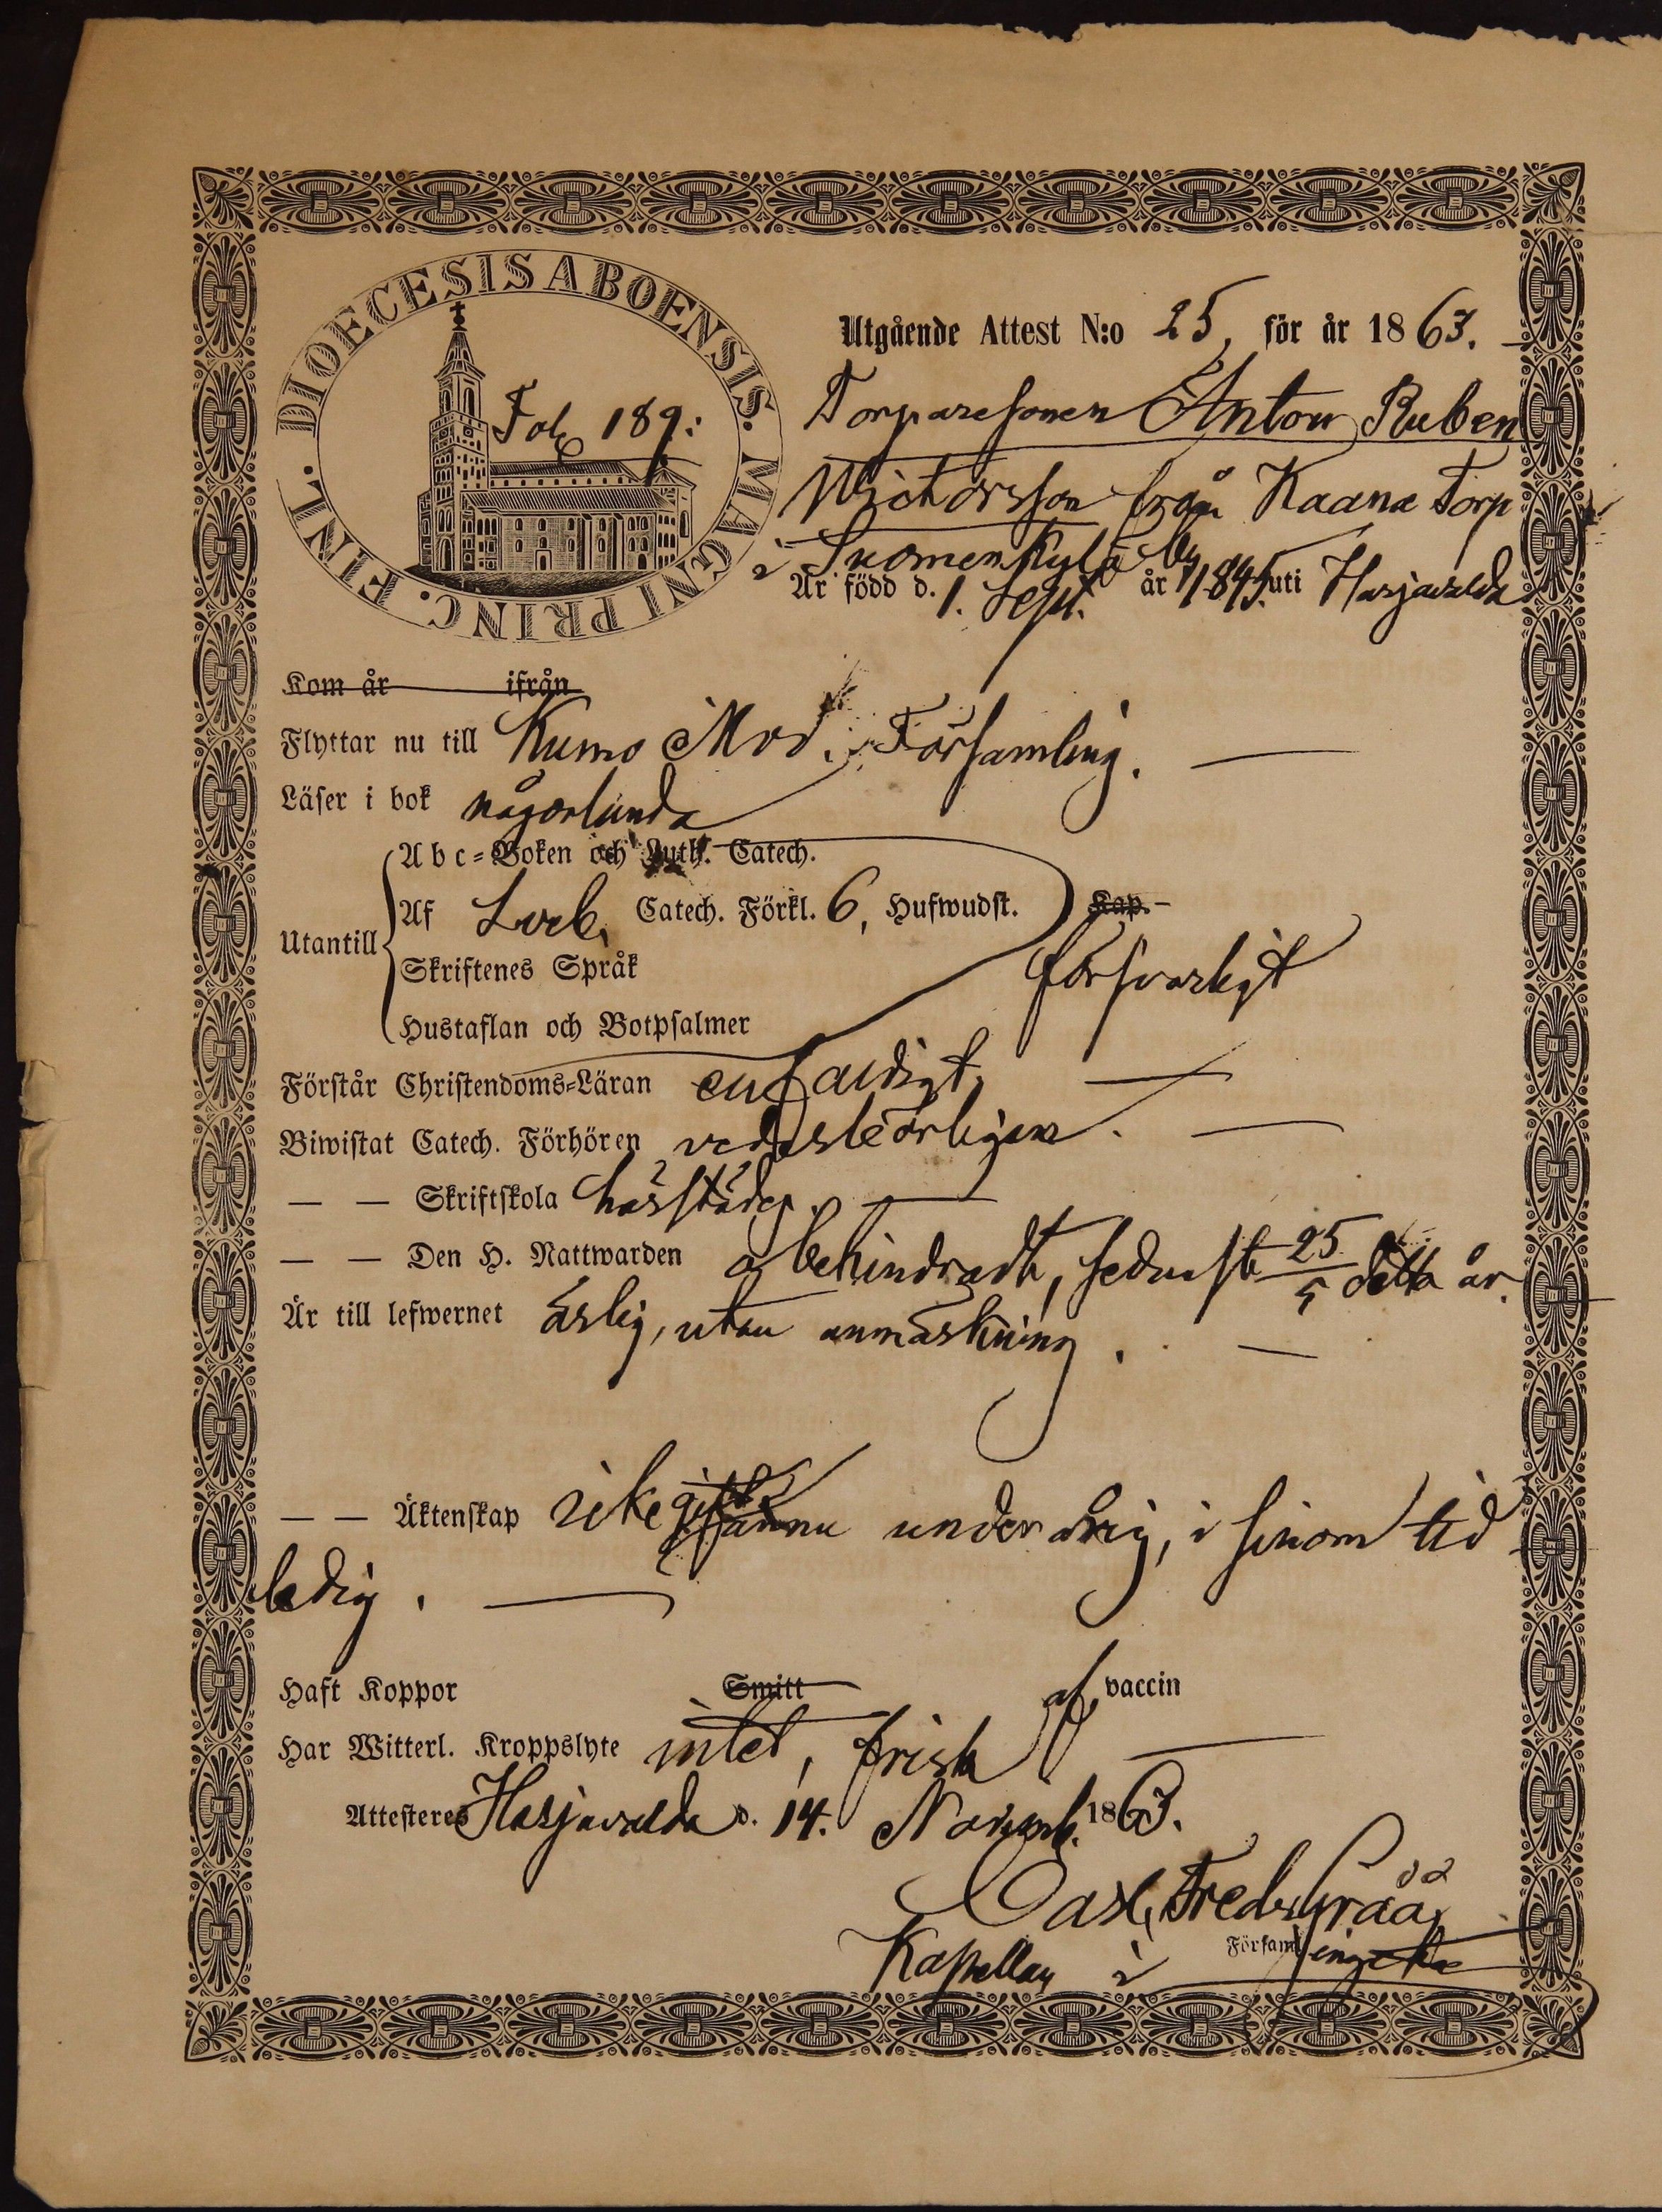 DIOECESIS ABOENSIS. MAGNI PRINC. FINL.
Fol. 189.
Utgående Attest N:o 25, för år 1863.
Torparesonen Anton Ruben
Wictorsson från Kaana Torp
i Suomenkylä by
Är född d. 1. Sept. år 1845. uti Harjavalda
Kom år ifrån
Flyttar nu till Kumo Mod. Församling.
Läser i bok någorlunda
Utantill
A b c-Boken och Luth. Catech.
Af Sveb. Catech. Förkl. 6, Hufwudst. Kap.
Skriftenes Språk
försvarligt
Hustaflan och Botpsalmer
Förstår Christendoms-Läran enfaldigt,
Biwistat Catech. Förhören vederbörligen.
— — Skriftskola härstädes.
— — Den H. Nattwarden obehindradt, sednast 25/5 detta år.
Är till lefwernet ärlig, utan anmärkning.
— — Äktenskap icke gift ännu underårig, i sinom tid
ledig.
Haft Koppor Smitt af vaccin
Har Witterl. Kroppslyte intet, frisk
Attesteres Harjavalda d. 14. Novemb. 1863.
Carl Fredr Gråå
Kapellan i Församling